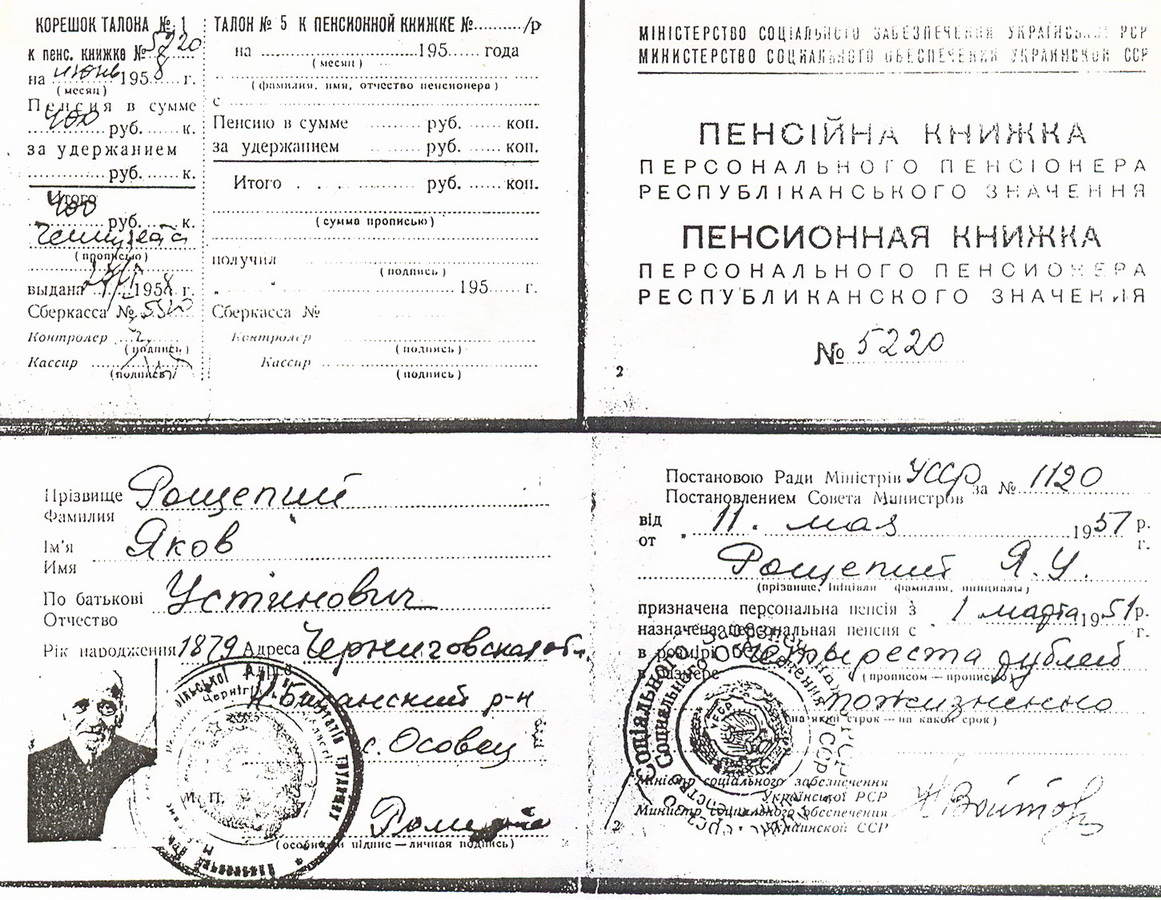 КОРЕШОК ТАЛОНА № 1
к пенс. книжке № 5220
на июнь 1958 г.
(месяц)
Пенсия в сумме
400 руб. к.
за удержанием
руб. к.
Итого
400 руб. к.
Четыреста
(прописью)
выдана 1958 г.
Сберкасса № 5520
Контролер
(подпись)
Кассир
(подпись)
ТАЛОН № 5 К ПЕНСИОННОЙ КНИЖКЕ № /р
на 195 года
(месяц)
(фамилия, имя, отчество пенсионера)
с
Пенсию в сумме руб. коп.
за удержанием руб. коп.
Итого руб. коп.
(сумма прописью)
получил
(подпись)
195 г.
Сберкасса №
Контролер
(подпись)
Кассир
(подпись)
МІНІСТЕРСТВО СОЦІАЛЬНОГО ЗАБЕЗПЕЧЕННЯ УКРАЇНСЬКОЇ РСР
МИНИСТЕРСТВО СОЦИАЛЬНОГО ОБЕСПЕЧЕНИЯ УКРАИНСКОЙ ССР
ПЕНСІЙНА КНИЖКА
ПЕРСОНАЛЬНОГО ПЕНСІОНЕРА
РЕСПУБЛІКАНСЬКОГО ЗНАЧЕННЯ
ПЕНСИОННАЯ КНИЖКА
ПЕРСОНАЛЬНОГО ПЕНСИОНЕРА
РЕСПУБЛИКАНСКОГО ЗНАЧЕНИЯ
№ 5220
2
Прізвище Рощепий
Фамилия
Ім'я Яков
Имя
По батькові Устинович
Отчество
Рік народження 1879 Адреса Черниговская обл.
Адрес
р-н
с. Осовец
М. П.
(особистий підпис — личная подпись)
Постановою Ради Міністрів УССР за № 1120
Постановлением Совета Министров
від 11. мая 1957 р.
от г.
Рощепий Я. У.
(прізвище, ініціали фамилия, инициалы)
призначена персональна пенсія з 1 марта 1951 р.
назначена персональная пенсия с г.
в розмірі Четыреста рублей
в размере (прописом — прописью)
пожизненно
(на який строк — на какой срок)
Міністр соціального забезпечення
Української РСР
Министр социального обеспечения
Украинской ССР
2